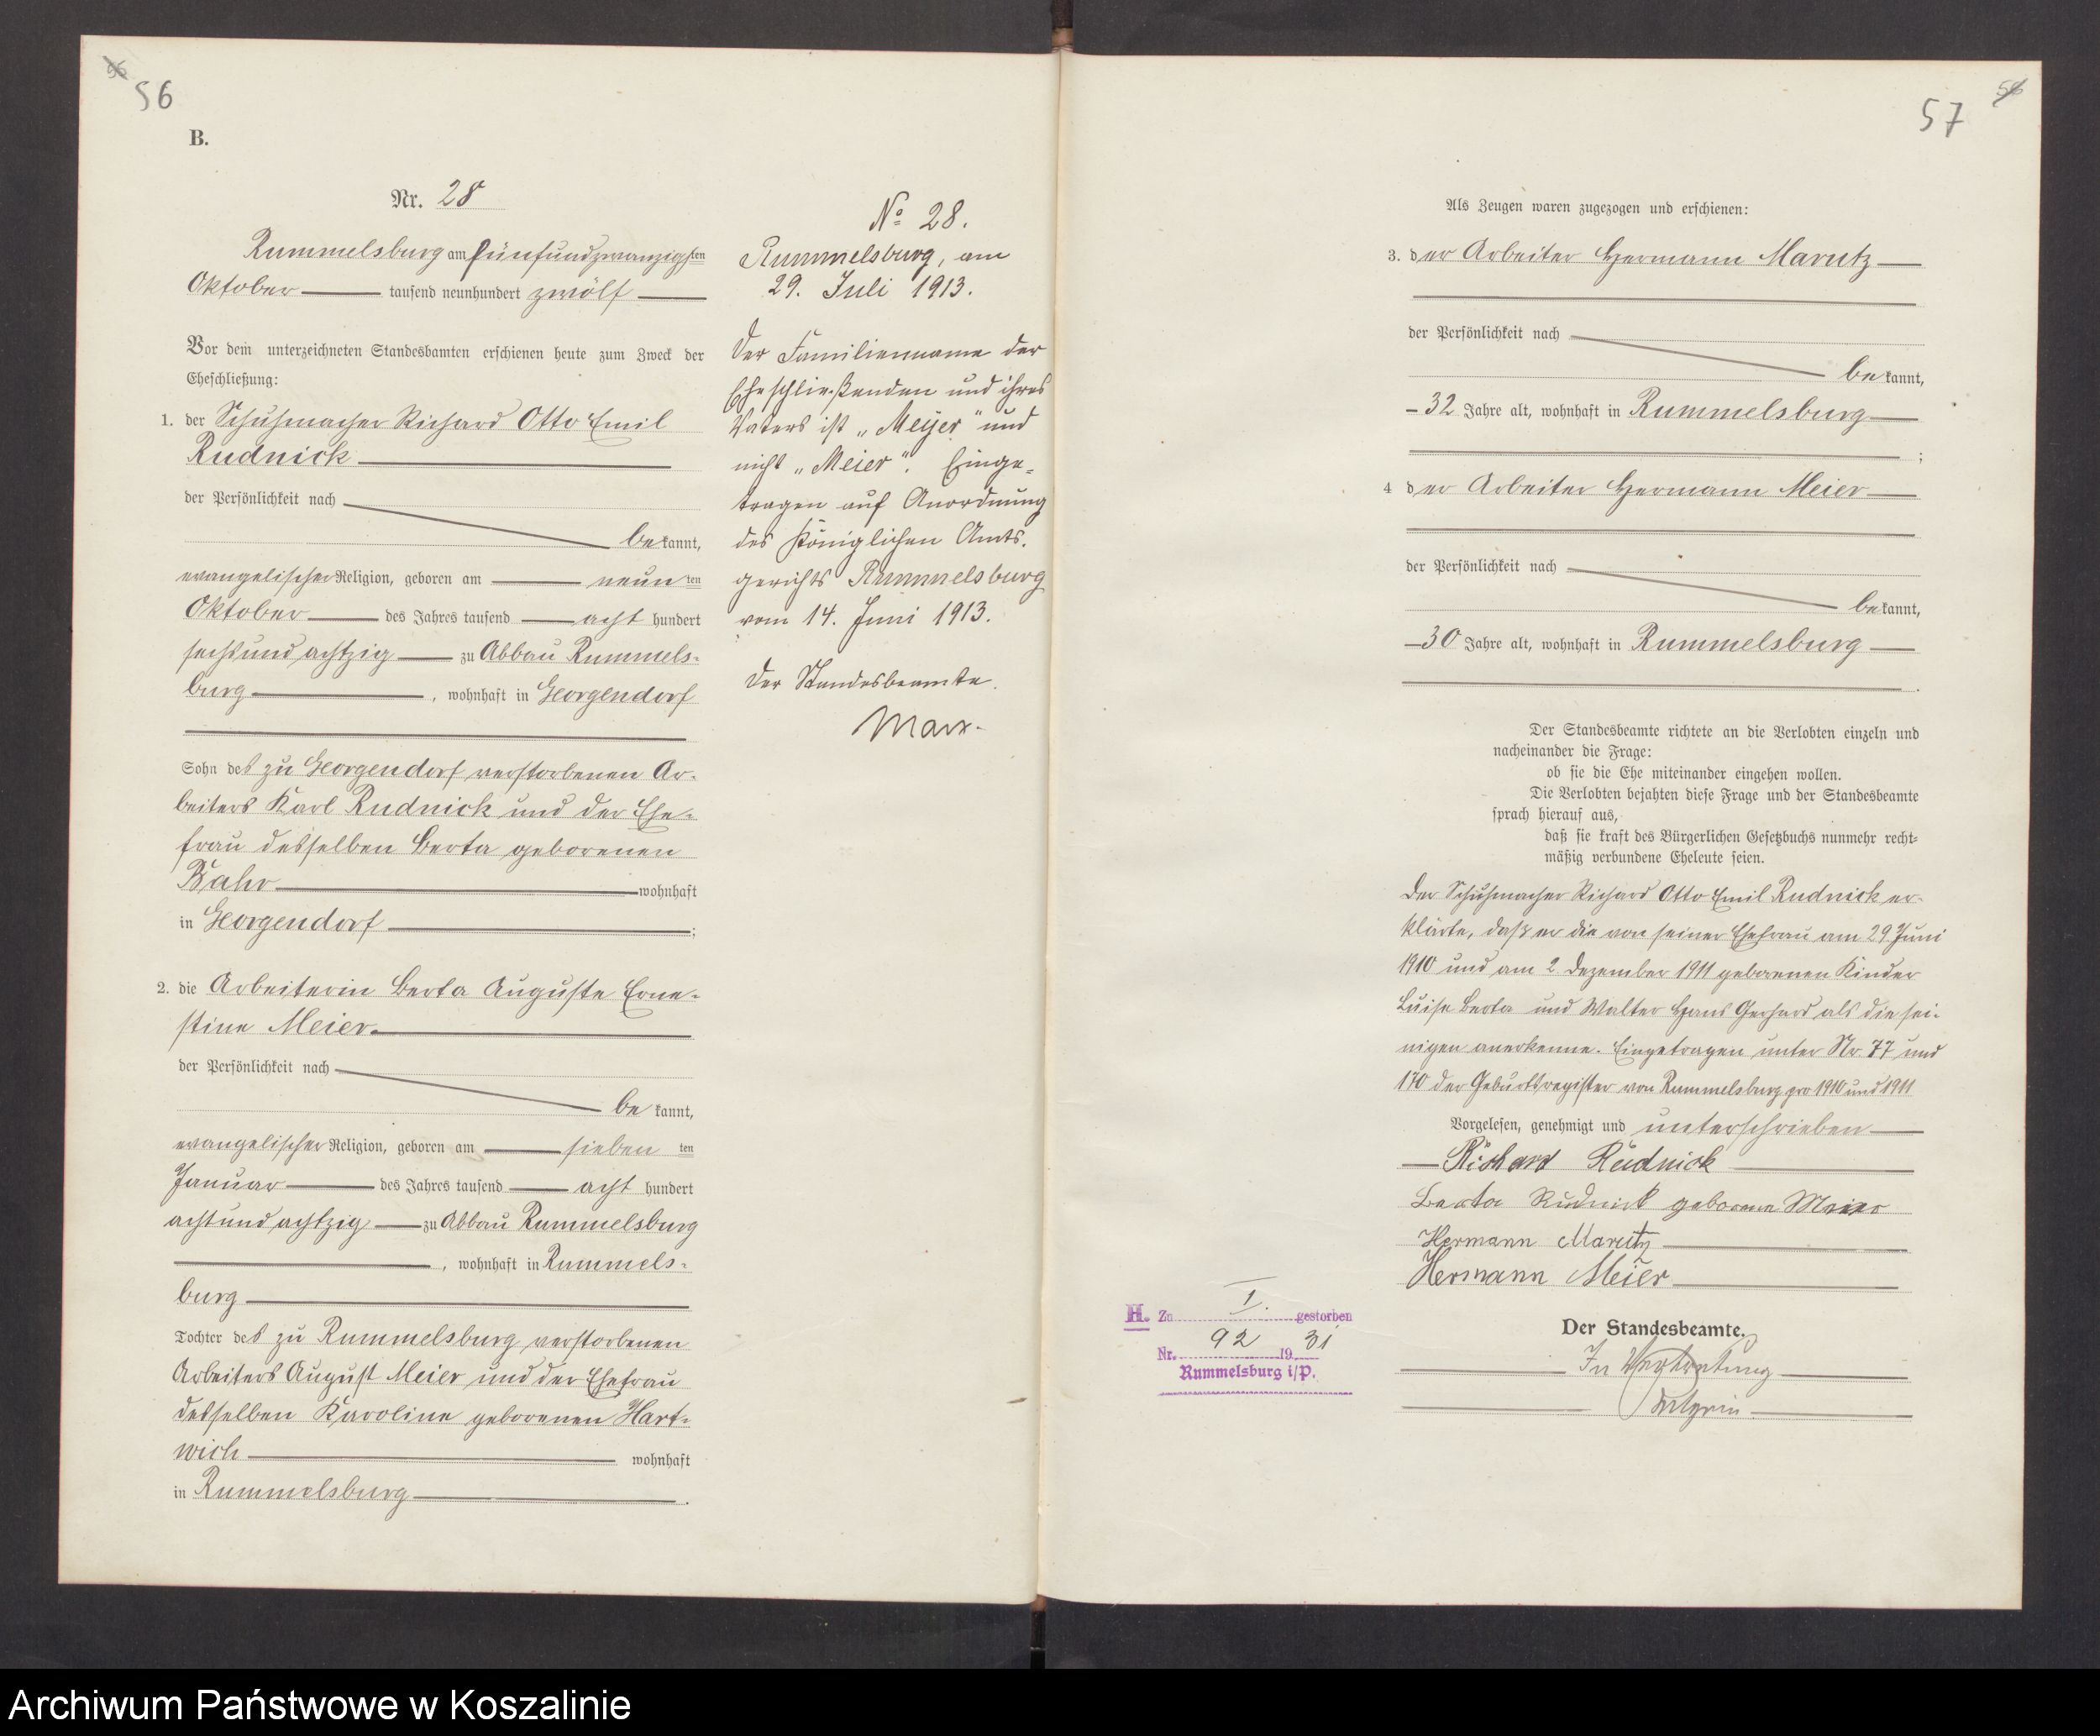 96
56
B.
Nr. 28
Rummelsburg am fünfundzwanzigsten
Oktober tausend neunhundert zwölf
Vor dem unterzeichneten Standesbamten erschienen heute zum Zweck der
Eheschließung:
1. der Schuhmacher Richard Otto Emil
Rudnick
der Persönlichkeit nach
bekannt,
evangelischer Religion, geboren am neunten
Oktober des Jahres tausend acht hundert
sechsundachtzig zu Abbau Rummels-
burg, wohnhaft in Georgendorf
Sohn des zu Georgendorf verstorbenen Ar-
beiters Karl Rudnick und der Ehe-
frau desselben Berta geborenen
Bahr wohnhaft
in Georgendorf;
2. die Arbeiterin Berta Auguste Erne-
stine Meier
der Persönlichkeit nach
bekannt,
evangelischer Religion, geboren am siebenten
Januar des Jahres tausend acht hundert
achtundachtzig zu Abbau Rummelsburg
, wohnhaft in Rummels-
burg
Tochter des zu Rummelsburg verstorbenen
Arbeiters August Meier und der Ehefrau
desselben Karoline geborenen Hart-
wich wohnhaft
in Rummelsburg.
No 28.
Rummelsburg, am
29. Juli 1913.
Der Familienname der
Eheschließenden und ihres
Vaters ist „Meyer" und
nicht „Meier". Einge-
tragen auf Anordnung
des Königlichen Amts-
gerichts Rummelsburg
vom 14. Juni 1913.
Der Standesbeamte.
Marx.
57
Als Zeugen waren zugezogen und erschienen:
3. der Arbeiter Hermann Marutz
der Persönlichkeit nach
bekannt,
32 Jahre alt, wohnhaft in Rummelsburg
;
4 der Arbeiter Hermann Meier
der Persönlichkeit nach
bekannt,
30 Jahre alt, wohnhaft in Rummelsburg
.
Der Standesbeamte richtete an die Verlobten einzeln und
nacheinander die Frage:
ob sie die Ehe miteinander eingehen wollen.
Die Verlobten bejahten diese Frage und der Standesbeamte
sprach hierauf aus,
daß sie kraft des Bürgerlichen Gesetzbuchs nunmehr recht-
mäßig verbundene Eheleute seien.
Der Schuhmacher Richard Otto Emil Rudnick er-
klärte, daß er die von seiner Ehefrau am 29 Juni
1910 und am 2. Dezember 1911 geborenen Kinder
Luise Berta und Walter Hans Gerhard als die sei-
nigen anerkenne. Eingetragen unter Nr. 77 und
170 der Geburtsregister von Rummelsburg pro 1910 und 1911
Vorgelesen, genehmigt und unterschrieben
Richard Rudnick
Berta Rudnick geborene Meier
Hermann Marutz
Hermann Meier
Der Standesbeamte.
In Vertretung
H. Zu I. gestorben
Nr. 92 1931
Rummelsburg i/P.
Archiwum Państwowe w Koszalinie